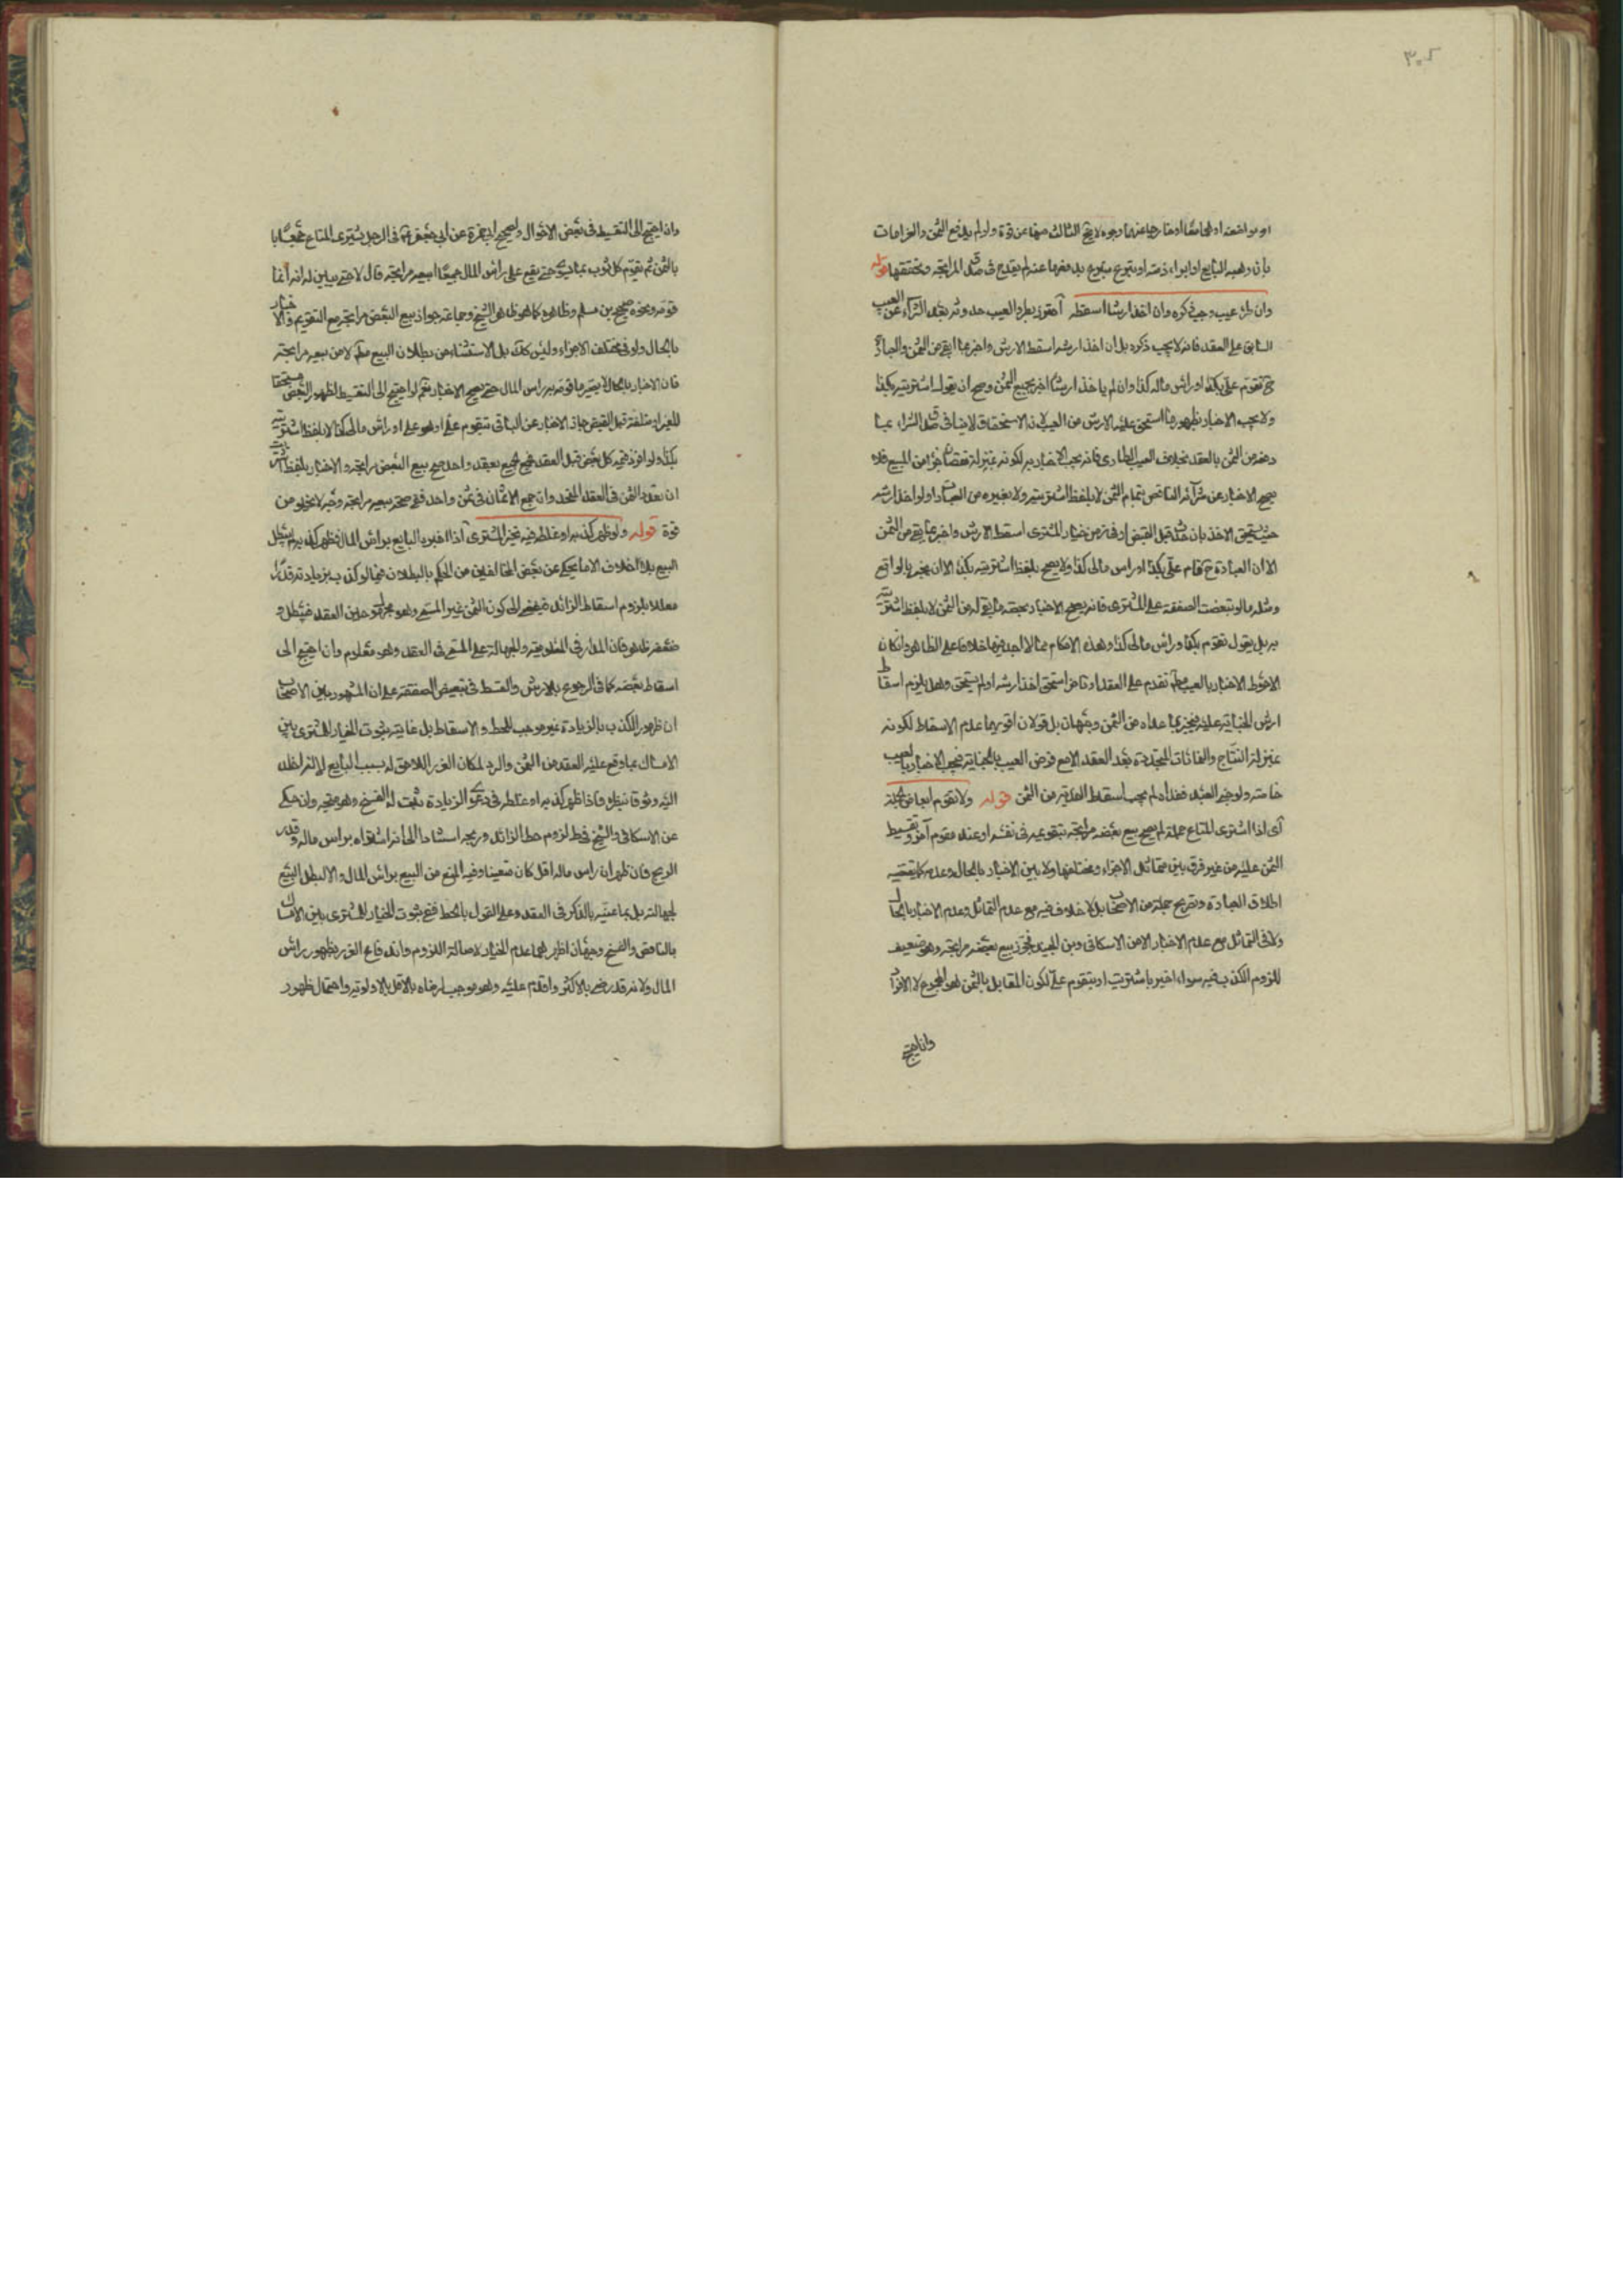 ٣٠٢
بان وهبه البايع او ابراء ذمته او تبرع متبرع
وان طرء عيب وجب ذكره وان اخذ ارشا اسقطه
السابق على العقد فانه لا يجب ذكره بل ان اخذ ارشه اسقط الارش واخبر بما ابقى من الثمن
تقوم على بكذا او راس ماله كذا وان لم ياخذ ارشا اخبر بجميع الثمن وصح ان يقول اشتريته بكذا
ولا يجب الاخبار بظهور ما استحق عليه الارش من العيب لان الاستحقاق لا ينافى صدق الشراء
من الثمن بالعقد بخلاف العيب الطارى فانه يجب الاخبار به لكونه بمنزلة نقصان جزء من المبيع فلا
يصح الاخبار عن شرائه الناقص بتمام الثمن لا بلفظ اشتريته ولا بغيره من العبارات ولو اخذ ارشه
حيث يستحق الاخذ بان حدث قبل القبض او فى زمن خيار المشترى اسقط الارش واخبر بما بقى من الثمن
الا ان العبارة ح تقام على بكذا او راس مالى كذا ولا يصح بلفظ اشتريته بكذا الا ان يخبر بالواقع
ومثله ما لو تبعضت الصفقة على المشترى فانه يصح الاخبار بحصة ما بقى له من الثمن لا بلفظ اشتريته
به بل يقول تقوم بكذا وراس مالى كذا وهذه الاحكام مما لا اجد فيها خلافا على الظاهر وان كان
الاحوط الاخبار بالعيب مط تقدم على العقد او تاخر استحق اخذ ارشه او لم يستحق وهل يلزم اسقاط
ارش الجناية عليه فيخبر بما عداه من الثمن وجهان بل قولان اقويهما عدم الاسقاط لكونه
بمنزلة النتاج والفائدات المتجددة بعد العقد الا مع فرض العيب بالجناية فيجب الاخبار بالعيب
خاصة ولو جنى العبد ففداه لم يجب اسقاط الفدية من الثمن قوله ولا تقوم ابعاض الجملة
اى اذا اشترى المتاع جملة لم يصح بيع بعضه مرابحة بتقويمه فى نفسه او عند مقوم آخر وتقسيط
الثمن عليه من غير فرق بين متماثل الاجزاء ومختلفها ولا بين الاخبار بالحال وعدمه كما يقتضيه
اطلاق العبارة وتصريح جملة من الاصحاب بل لا خلاف فيه مع عدم التماثل وعدم الاخبار بالحال
ولا فى التماثل مع عدم الاخبار الا من الاسكافى وبن الجنيد فجوز بيع بعضه مرابحة وهو ضعيف
للزوم الكذب فيه سواء اخبر باشتريت او بتقوم على لكون المقابل بالثمن هو المجموع لا الافراد
وان احتيج
وان احتيج الى التقسيط فى بعض الاحوال ولصحيح ابى حمزة عن ابى جعفر ع فى الرجل يشترى المتاع جميعا
بالثمن ثم يقوم كل ثوب بما يسوى حتى يقع على راس المال جميعا ايبيعه مرابحة قال لا حتى يبين له انه انما
قومه ونحوه صحيح بن مسلم وظاهره كما هو ظاهر الشيخ وجماعة جواز بيع البعض مرابحة مع التقويم والاخبار
بالحال ولو فى مختلف الاجزاء وليس كذلك بل الاستثناء من بطلان البيع مط لا من بيعه مرابحة
فان الاخبار بالحال لا يصير ما قومه به راس المال حتى يصح الاخبار نعم لو احتيج الى التقسيط لظهور البعض مستحقا
للغير او متلفة قبل القبض جاز الاخبار عن الباقى بتقوم على او هو على او راس مالى كذا لا بلفظ اشتريته
بكذا ولو افرز قيمة كل بعض قبل العقد فبيع الجميع بعقد واحد صح بيع البعض مرابحة والاخبار بلفظ اشتريت
ان تعدد الثمن فى العقد المتحد وان جمع الاثمان فى ثمن واحد ففى صحة بيعه مرابحة وجه لا يخلو من
قوة قوله ولو ظهر كذبه او غلطه فيه تخير المشترى اذا اخبره البايع براس المال فظهر كذبه لم يبطل
البيع بلا خلاف الا ما يحكى عن بعض المخالفين من الحكم بالبطلان فيما لو كذب بزيادة
معللا بلزوم اسقاط الزائد فيفضى الى كون الثمن غير المسمى وهو مجهول حين العقد فيبطل و
ضعفه ظاهر فان المدار فى المعلومية والجهالة على المسمى فى العقد وهو معلوم وان احتيج الى
اسقاط بعضه كما فى الرجوع بالارش والقسط فى تبعيض الصفقة على ان المشهور بين الاصحاب
ان ظهور الكذب بالزيادة غير موجب للحط والاسقاط بل غايته ثبوت الخيار للمشترى بين
الامساك بما وقع عليه العقد من الثمن والرد لمكان الغرر اللاحق له بسبب البايع
اليه وثوقا بنظره فاذا ظهر كذبه او غلطه فى دعوى الزيادة ثبت له الفسخ وهو متجه وان حكى
عن الاسكافى والشيخ فى ط لزوم حط الزائد وربحه استنادا الى انه اشتراه براس ماله وقدر
الربح فان ظهر ان راس ماله اقل كان متعينا وفيه المنع من البيع براس المال والا لبطل البيع
لجهالته بل بما عينه بالذكر فى العقد وعلى القول بالحط ففى ثبوت الخيار للمشترى بين الامساك
بالناقص والفسخ وجهان اظهرهما عدم الخيار لاصالة اللزوم واندفاع الغرر بظهور راس
المال ولانه قد رضى بالاكثر واقدم عليه وهو موجب لرضاه بالاقل بالاولوية واحتمال ظهور